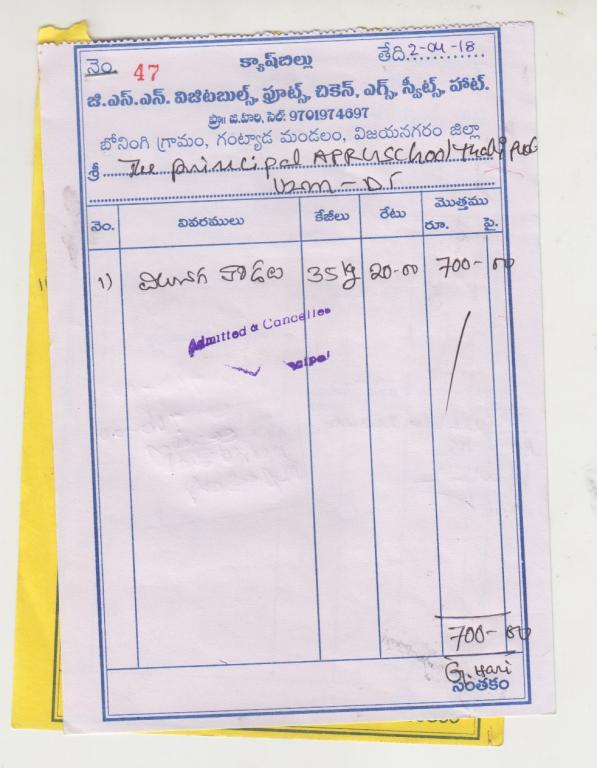 నెం. 47 క్యాష్‌బిల్లు తేది 2-04-18
జి.ఎస్.ఎన్. విజిటబుల్స్, ఫ్రూట్స్, చికెన్, ఎగ్స్, స్వీట్స్, హాట్.
ప్రొ॥ జి.హరి, సెల్: 9701974697
బోనింగి గ్రామం, గంట్యాడ మండలం, విజయనగరం జిల్లా
శ్రీ The principal APRUSchool
Vzm - DT
నెం. వివరములు కేజీలు రేటు మొత్తము
రూ. పై.
1) 35 kg 20-00 700-00
Admitted & Cancelled
700-00
G. Hari
సంతకం